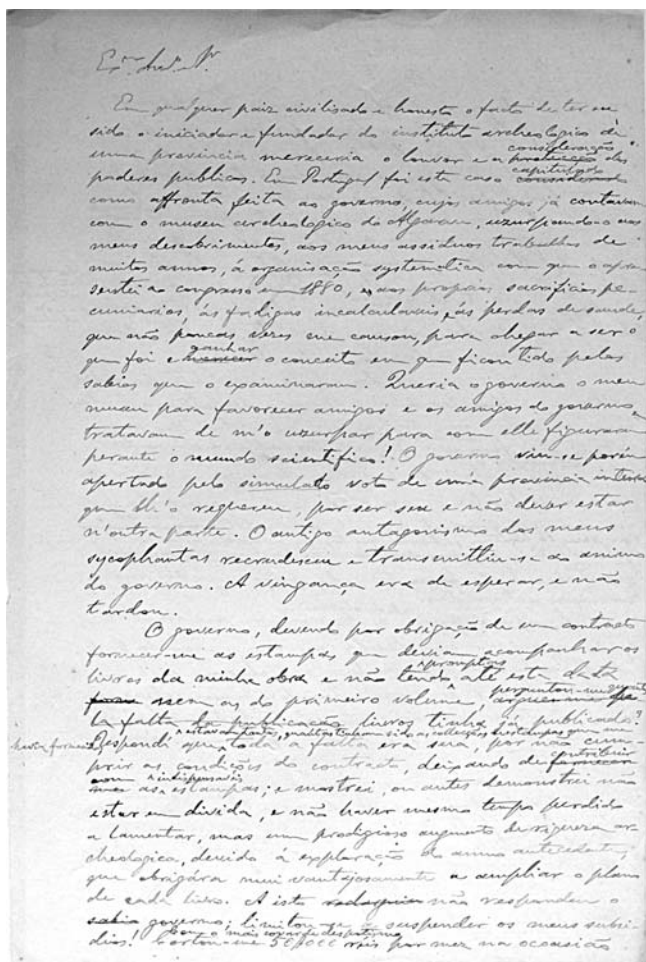 Ex.mo Am.o e Sr.
Em qualquer paiz civilisado e honesto o facto de ter eu
sido o iniciador e fundador do instituto archeologico de
uma provincia mereceria o louvor e a consideração protecção dos
poderes publicos. Em Portugal foi este caso capitulado considerado
como affronta feita ao governo, cujos amigos já contavam
com o museu archeologico do Algarve, uzurpando-o aos
meus descobrimentos, aos meus assiduos trabalhos de
muitos annos, á organisação systematica com que o apre
sentei ao congresso em 1880, aos proprios sacrificios pe-
cuniarios, ás fadigas incalculaveis, ás perdas de saude,
que não poucas vezes me causou, para chegar a ser o
que foi e ganhar merecer o conceito em que ficou tido pelos
sabios que o examinaram. Queria o governo o meu
museu para favorecer amigos e os amigos do governo
tratavam de m'o uzurpar para com elle figurarem
perante o mundo scientifico! O governo viu-se porém
apertado pelo simulado voto de uma provincia inteira
que lh'o requereu, por ser seu e não dever estar
n'outra parte. O antigo antagonismo dos meus
sycophantas recrudesceu e transmittiu-se ao animo
do governo. A vingança era de esperar, e não
tardou.
O governo, devendo por obrigação de um contracto
fornecer-me as estampas que deviam acompanhar os
livros da minha obra e não tendo promptas até esta data
nem as do primeiro volume, perguntou-me
la falta da publicação livros tinha já publicado?
havia fornecido
Respondi que toda a falta era sua, por não cum
prir as condições do contracto, deixando de contribuir fornecer
com as indispensaveis estampas; e mostrei, ou antes demonstrei não
estar em divida, e não haver mesmo tempo perdido
a lamentar, mas um prodigioso augmento de riqueza ar-
cheologica, devido á exploração do anno antecedente,
que obrigára mui vantajosamente a ampliar o plano
de cada livro. A isto não respondeu o
sabio governo; limitou-se a suspender os meus subsi-
dios! Com o mais covarde despotismo
Cortou-me 50$000 réis por mez na occasião